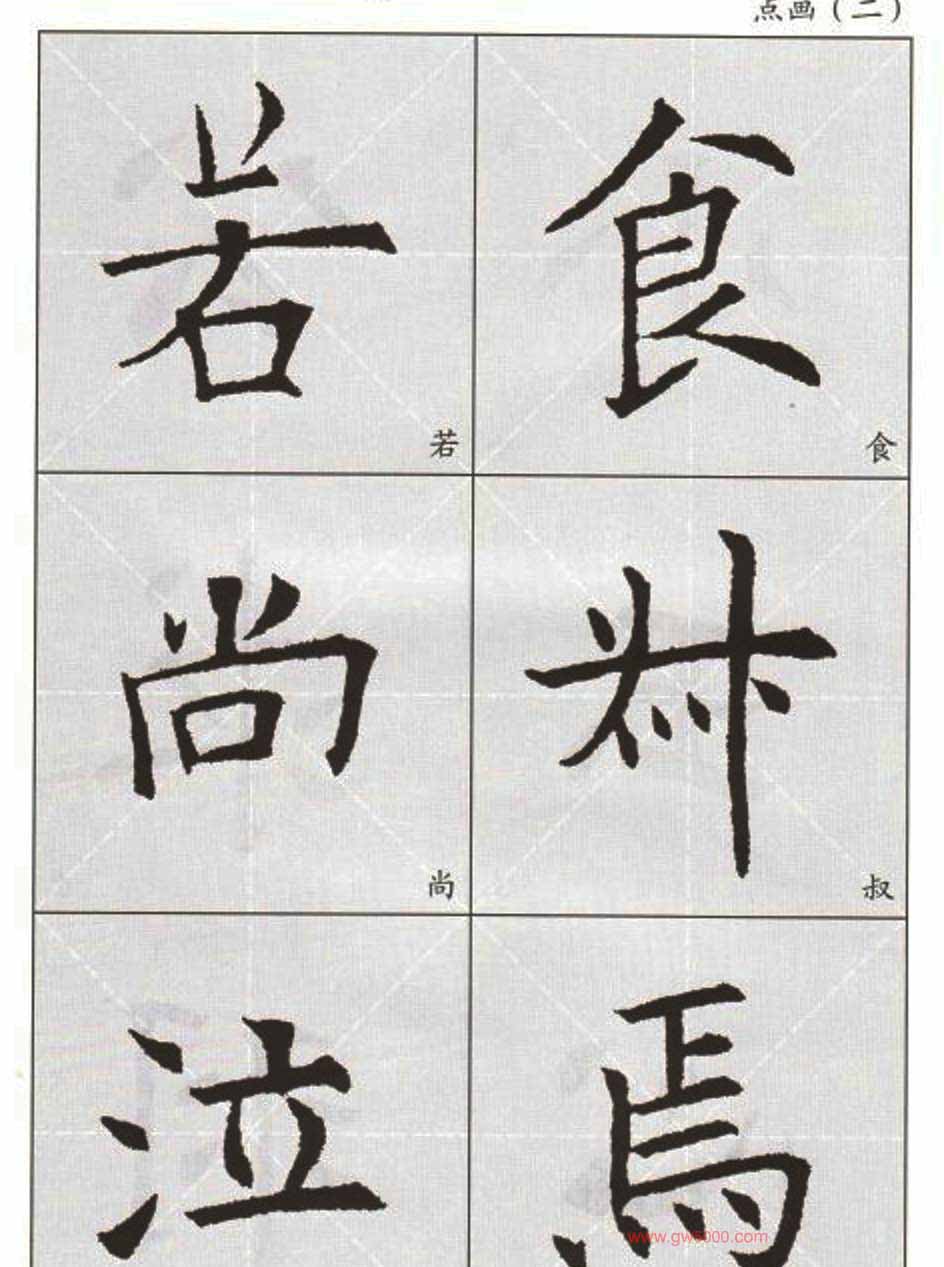 点画(二)
若 食
若 食
尚 叔
尚 叔
泣 焉
www.gw5000.com